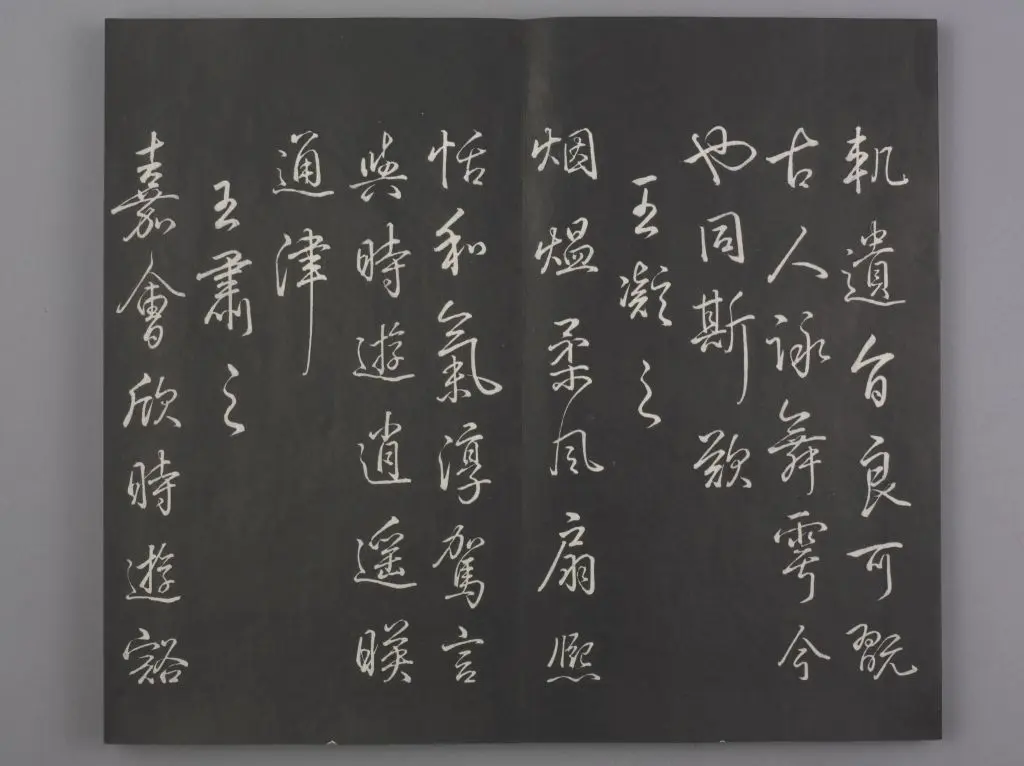 軌遺音良可翫
古人詠舞雩今
也同斯歎
王凝之
烟熅柔風扇熈
恬和氣淳駕言
與時遊逍遥暎
通津
王肅之
嘉會欣時遊豁